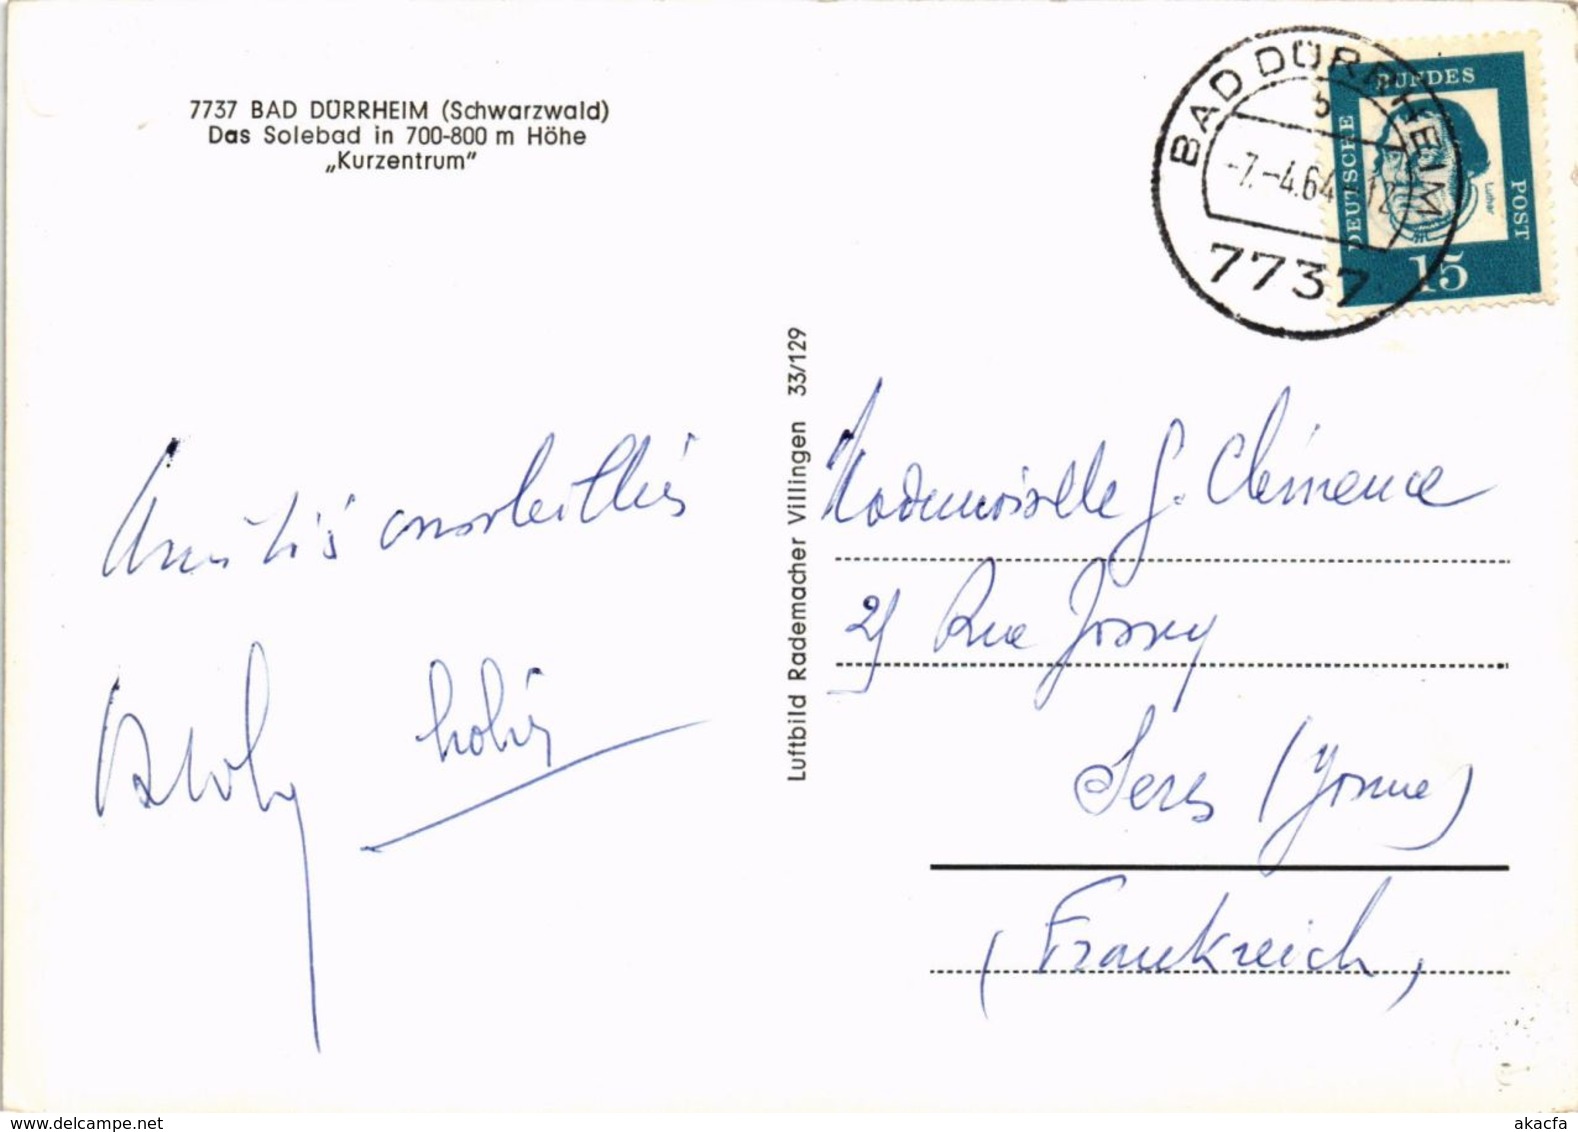 7737 BAD DÜRRHEIM (Schwarzwald)
Das Solebad in 700-800 m Höhe
„Kurzentrum"
BAD DÜRRHEIM
b
-7.-4.64-12
7737
DEUTSCHE
BUNDES
POST
Luther
15
Luftbild Rademacher Villingen 33/129
Amitiés
Mademoiselle G. Clémence
Rue Jossey
Sens (Yonne)
(Frankreich)
akacfa